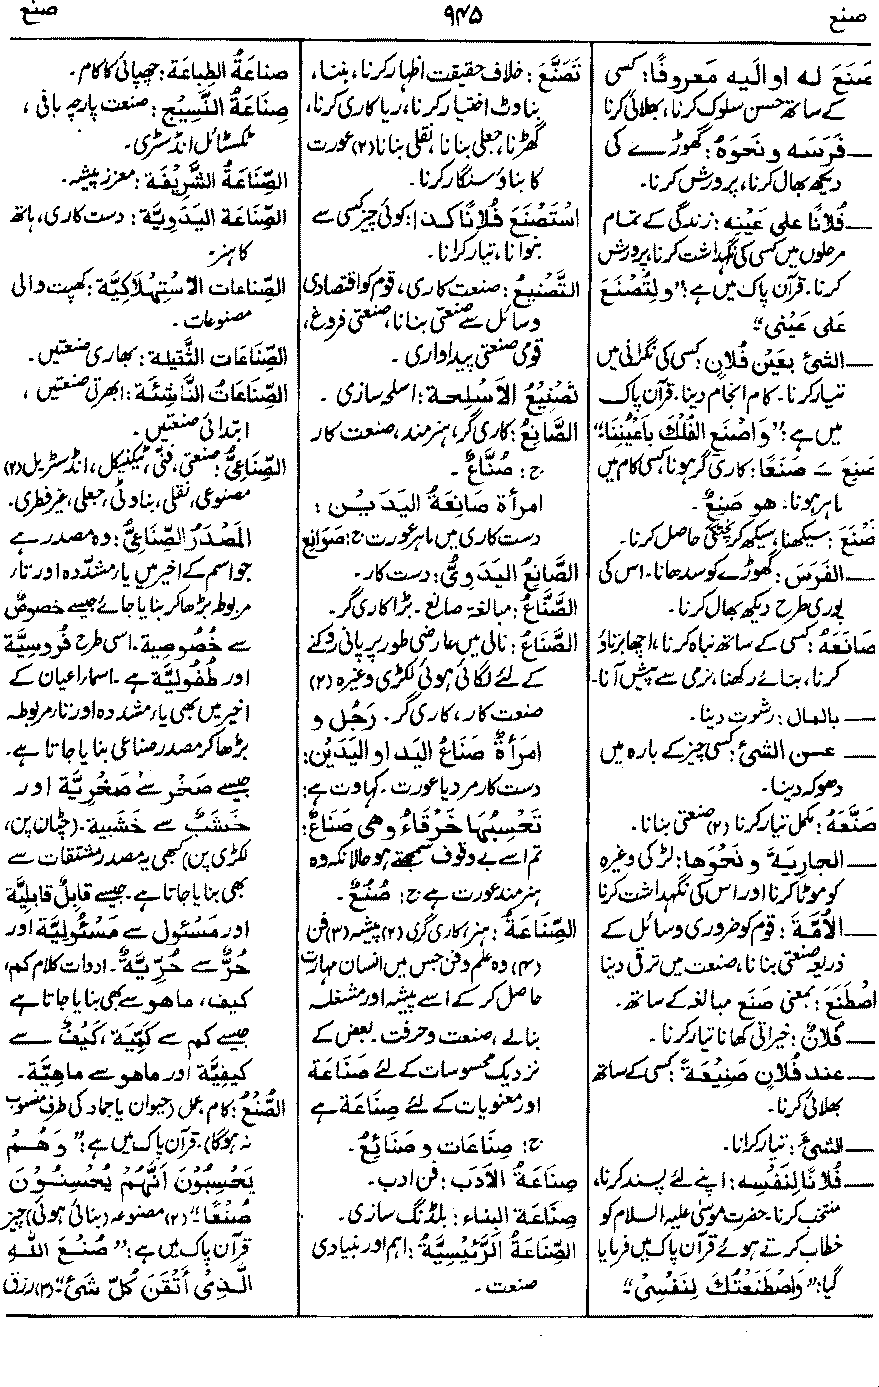 صنع
۹۴۵
صنع
صَنَعَ له او الَیه مَعروفًا: کسی
کے ساتھ حسن سلوک کرنا، بھلائی کرنا
— فَرَسَه و نَحوَهُ: گھوڑے کی
دیکھ بھال کرنا، پرورش کرنا۔
— فُلَانًا علی عَینِه: زندگی کے تمام
مرحلوں میں کسی کی نگہداشت کرنا، پرورش
کرنا۔ قرآن پاک میں ہے: "ولِتُصْنَعَ
عَلی عَیْنِی"
— الشیَٔ بِعَیْنِ فُلَانٍ: کسی کی نگرانی میں
تیار کرنا۔ کام انجام دینا۔ قرآن پاک
میں ہے: "وَاصْنَعِ الفُلْكَ بِاَعْیُنِنَاء"
صَنِعَ ـَ صَنَعًا: کاری گر ہونا، کسی کام میں
ماہر ہونا۔ هو صَنِعٌ۔
صَنَّعَ: سیکھنا، سیکھ کر پختگی حاصل کرنا۔
— الفَرَسَ: گھوڑے کو سدھانا۔ اس کی
پوری طرح دیکھ بھال کرنا۔
صَانَعَهُ: کسی کے ساتھ نباہ کرنا، اچھا برتاؤ
کرنا، بنائے رکھنا، نرمی سے پیش آنا۔
— بالمال: رشوت دینا۔
— عن الشیٔ: کسی چیز کے بارہ میں
دھوکہ دینا۔
صَنَّعَهُ: مکمل تیار کرنا (۲) صنعتی بنانا۔
— الجاریَةَ و نَحْوَها: لڑکی وغیرہ
کو موٹا کرنا اور اس کی نگہداشت کرنا
— الاُمَّةَ: قوم کو ضروری وسائل کے
ذریعہ صنعتی بنانا، صنعت میں ترقی دینا
اصْطَنَعَ: بمعنی صَنَعَ مبالغہ کے ساتھ۔
— فُلَانٌ: خیراتی کھانا تیار کرنا۔
— عند فُلَانٍ صَنِیْعَةً: کسی کے ساتھ
بھلائی کرنا۔
— الشیَٔ: تیار کرانا۔
— فُلَانًا لِنَفْسِه: اپنے لئے پسند کرنا،
منتخب کرنا۔ حضرت موسیٰ علیہ السلام کو
خطاب کرتے ہوئے قرآن پاک میں فرمایا
گیا: "وَاصْطَنَعْتُكَ لِنَفْسِیْ"
تَصَنَّعَ: خلاف حقیقت اظہار کرنا، بننا،
بناوٹ اختیار کرنا، ریا کاری کرنا،
گھڑنا، جعلی بنانا، نقلی بنانا (۲) عورت
کا بناؤ سنگار کرنا۔
اسْتَصْنَعَ فُلَانًا كذا: کوئی چیز کسی سے
بنوانا، تیار کرانا۔
التَّصْنِیعُ: صنعت کاری، قوم کو اقتصادی
وسائل سے صنعتی بنانا، صنعتی فروغ،
قومی صنعتی پیداواری۔
تَصْنِیْعُ الاَسْلِحة: اسلحہ سازی۔
الصَّانِعُ: کاری گر، ہنر مند، صنعت کار
ج: صُنَّاعٌ۔
امرأة صَانِعَةُ الیَدَیْن:
دست کاری میں ماہر عورت ج: صَوَانِع
الصَّانِعُ الیَدَوِیُّ: دست کار۔
الصَّنَّاعُ: مبالغہ صانع۔ بڑا کاری گر۔
الصَّنَاعُ: نالی میں عارضی طور پر پانی روکنے
کے لئے لگائی ہوئی لکڑی وغیرہ (۲)
صنعت کار، کاری گر۔ رَجُل و
امرأةٌ صَنَاعُ الیَد او الیَدَیْن:
دست کار مرد یا عورت۔ کہاوت ہے:
تَحْسِبُهَا خَرْقَاءُ وهی صَنَاعٌ:
تم اسے بے وقوف سمجھتے ہو حالانکہ وہ
ہنر مند عورت ہے ج: صُنُعٌ۔
الصِّنَاعَةُ: ہنر، کاری گری (۲) پیشہ (۳) فن
(۴) وہ علم و فن جس میں انسان مہارت
حاصل کر کے اسے پیشہ اور مشغلہ
بنالے، صنعت و حرفت۔ بعض کے
نزدیک محسوسات کے لئے صَنَاعَة
اور معنویات کے لئے صِنَاعَة ہے
ج: صِنَاعَات و صَنَائِعُ۔
صِنَاعَةُ الاَدَب: فن ادب۔
صِنَاعَةُ البناء: بلڈنگ سازی۔
الصِّنَاعَةُ الرَّئِیْسِیَّةُ: اہم اور بنیادی
صنعت۔
صناعَةُ الطِّباعَة: چھپائی کا کام۔
صِنَاعَةُ النَّسِیْج: صنعت پارچہ بافی،
ٹکسٹائل انڈسٹری۔
الصِّنَاعَةُ الشَّرِیْفَة: معزز پیشہ۔
الصِّنَاعَة الیَدَوِیَّة: دست کاری، ہاتھ
کا ہنر۔
الصِّناعات الاسْتِهْلَاکِیَّة: کھپت والی
مصنوعات۔
الصِّنَاعَات الثَّقِیلة: بھاری صنعتیں۔
الصِّنَاعَاتُ النَّاشِئَة: ابھرتی صنعتیں،
ابتدائی صنعتیں۔
الصِّنَاعِیُّ: صنعتی، فنی، ٹیکنیکل، انڈسٹریل (۲)
مصنوعی، نقلی، بناوٹی، جعلی، غیر فطری۔
المَصْدَرُ الصِّنَاعِیُّ: وہ مصدر ہے
جو اسم کے اخیر میں یار مشدّدہ اور تار
مربوطہ بڑھا کر بنایا جائے جیسے خصوصٌ
سے خُصُوصِیة۔ اسی طرح فُروسِیَّة
اور طُفُولِیَّة ہے۔ اسمار اعیان کے
اخیر میں بھی یار مشددہ اور تار مربوطہ
بڑھا کر مصدر صناعی بنایا جاتا ہے۔
جیسے صَخْر سے صَخْرِیَّة اور
خَشَبٌ سے خَشَبِیة۔ (چٹان پن،
لکڑی پن) کبھی یہ مصدر مشتقات سے
بھی بنایا جاتا ہے۔ جیسے قابِلٌ قابِلِیَّة
اور مَسْئول سے مَسْئُولِیَّة اور
حُرٌّ سے حُرِّیَّةٌ۔ ادوات کلام کم،
کیف، ماهو سے بھی بنایا جاتا ہے
جیسے کم سے کَمِّیَّة، کَیْفُ سے
کیفِیَّة اور ماهو سے ماهِیَّة۔
الصُّنْعُ: کام، عمل (حیوان یا جماد کی طرف منسوب
نہ ہوگا)۔ قرآن پاک میں ہے: "وَهُمْ
یَحْسِبُوْنَ اَنَّهُمْ یُحْسِنُوْنَ
صُنْعًا" (۲) مصنوعہ (بنائی ہوئی) چیز
قرآن پاک میں ہے: "صُنْعَ اللهِ
الَّذِیْ اَتْقَنَ کُلَّ شَیْءٍ" (۳) رزق